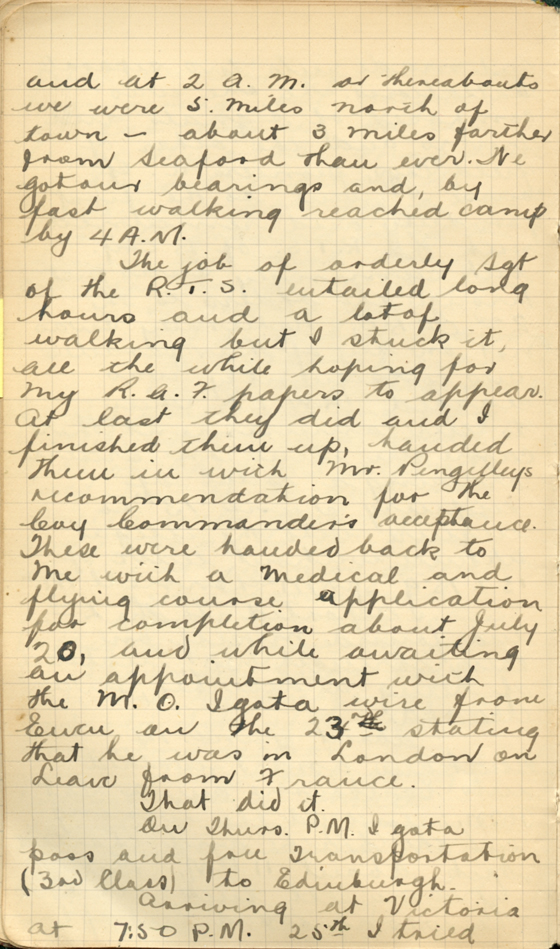 and at 2 A.M. or thereabouts
we were 5 miles north of
town - about 3 miles farther
from Seaford than ever. We
got our bearings and, by
fast walking reached camp
by 4 A.M.
The job of orderly Sgt
of the R.T.S. entailed long
hours and a lot of
walking but I stuck it,
all the while hoping for
my R.A.F. papers to appear.
At last they did and I
finished them up, handed
them in with Mr. Pengilleys
recommendation for the
Coy Commander's acceptance.
These were handed back to
me with a medical and
flying course application
for completion about July
20, and while awaiting
an appointment with
the M.O. I got a wire from
Ewen on the 23th stating
that he was in London on
Leave from France.
That did it.
On Thurs. P.M. I got a
pass and free transportation
(3rd Class) to Edinburgh.
Arriving at Victoria
at 7:50 P.M. 25th I tried